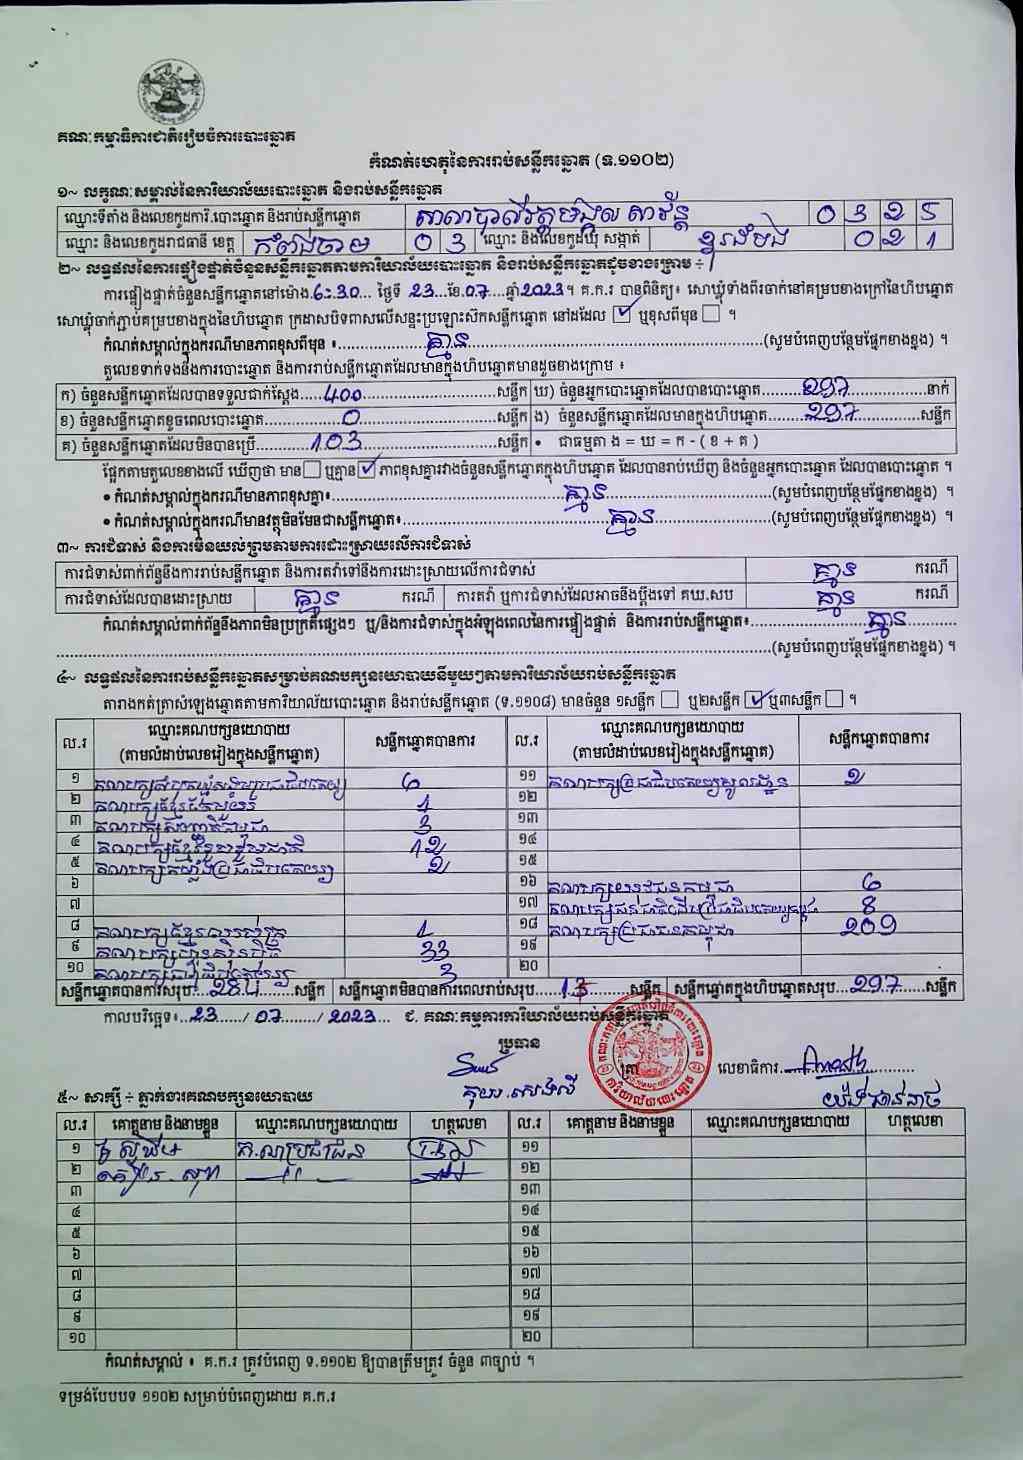 គណៈកម្មាធិការជាតិរៀបចំការបោះឆ្នោត
កំណត់ហេតុនៃការរាប់សន្លឹកឆ្នោត (ទ.១១០២)
១~ លក្ខណៈសម្គាល់នៃការិយាល័យបោះឆ្នោត និងរាប់សន្លឹកឆ្នោត
ឈ្មោះទីតាំង និងលេខកូដការិ.បោះឆ្នោត និងរាប់សន្លឹកឆ្នោត សាលាបាលីវត្តមង្គល សាវ័ន្ត 0 3 2 5
ឈ្មោះ និងលេខកូដរាជធានី ខេត្ត កំពង់ចាម 0 3 ឈ្មោះ និងលេខកូដឃុំ សង្កាត់ 0 2 1
២~ លទ្ធផលនៃការផ្ទៀងផ្ទាត់ចំនួនសន្លឹកឆ្នោតតាមការិយាល័យបោះឆ្នោត និងរាប់សន្លឹកឆ្នោតដូចខាងក្រោម ÷
ការផ្ទៀងផ្ទាត់ចំនួនសន្លឹកឆ្នោតនៅម៉ោង 6:30 ថ្ងៃទី 23 ខែ 07 ឆ្នាំ 2023 ។ គ.ក.រ បានពិនិត្យ៖ សោឃ្លុំទាំងពីរចាក់នៅគម្របខាងក្រៅនៃហិបឆ្នោត
សោឃ្លុំចាក់ភ្ជាប់គម្របខាងក្នុងនៃហិបឆ្នោត ក្រដាសបិទពាសលើសន្ទះប្រឡោះស៊កសន្លឹកឆ្នោត នៅដដែល ☑ ឬខុសពីមុន ☐ ។
កំណត់សម្គាល់ក្នុងករណីមានភាពខុសពីមុន ៖ គ្មាន (សូមបំពេញបន្ថែមផ្នែកខាងខ្នង) ។
តួលេខទាក់ទងនឹងការបោះឆ្នោត និងការរាប់សន្លឹកឆ្នោតដែលមានក្នុងហិបឆ្នោតមានដូចខាងក្រោម ៖
ក) ចំនួនសន្លឹកឆ្នោតដែលបានទទួលជាក់ស្តែង 400 សន្លឹក ឃ) ចំនួនអ្នកបោះឆ្នោតដែលបានបោះឆ្នោត 297 នាក់
ខ) ចំនួនសន្លឹកឆ្នោតខូចពេលបោះឆ្នោត 0 សន្លឹក ង) ចំនួនសន្លឹកឆ្នោតដែលមានក្នុងហិបឆ្នោត 297 សន្លឹក
គ) ចំនួនសន្លឹកឆ្នោតដែលមិនបានប្រើ 103 សន្លឹក • ជាធម្មតា ង = ឃ = ក - ( ខ + គ )
ផ្អែកតាមតួលេខខាងលើ ឃើញថា មាន ☐ ឬគ្មាន ☑ ភាពខុសគ្នារវាងចំនួនសន្លឹកឆ្នោតក្នុងហិបឆ្នោត ដែលបានរាប់ឃើញ និងចំនួនអ្នកបោះឆ្នោត ដែលបានបោះឆ្នោត ។
• កំណត់សម្គាល់ក្នុងករណីមានភាពខុសគ្នា៖ គ្មាន (សូមបំពេញបន្ថែមផ្នែកខាងខ្នង) ។
• កំណត់សម្គាល់ក្នុងករណីមានវត្ថុមិនមែនជាសន្លឹកឆ្នោត៖ គ្មាន (សូមបំពេញបន្ថែមផ្នែកខាងខ្នង) ។
៣~ ការជំទាស់ និងការមិនយល់ព្រមតាមការដោះស្រាយលើការជំទាស់
ការជំទាស់ពាក់ព័ន្ធនឹងការរាប់សន្លឹកឆ្នោត និងការតវ៉ាទៅនឹងការដោះស្រាយលើការជំទាស់ គ្មាន ករណី
ការជំទាស់ដែលបានដោះស្រាយ គ្មាន ករណី ការតវ៉ា ឬការជំទាស់ដែលអាចនឹងប្តឹងទៅ គឃ.សប គ្មាន ករណី
កំណត់សម្គាល់ពាក់ព័ន្ធនឹងភាពមិនប្រក្រតីផ្សេងៗ ឬ/និងការជំទាស់ក្នុងអំឡុងពេលនៃការផ្ទៀងផ្ទាត់ និងការរាប់សន្លឹកឆ្នោត៖ គ្មាន
(សូមបំពេញបន្ថែមផ្នែកខាងខ្នង) ។
៤~ លទ្ធផលនៃការរាប់សន្លឹកឆ្នោតសម្រាប់គណបក្សនយោបាយនីមួយៗតាមការិយាល័យរាប់សន្លឹកឆ្នោត
តារាងកត់ត្រាសំឡេងឆ្នោតតាមការិយាល័យបោះឆ្នោត និងរាប់សន្លឹកឆ្នោត (ទ.១១០៨) មានចំនួន ១សន្លឹក ☐ ឬ២សន្លឹក ☑ ឬ៣សន្លឹក ☐ ។
ល.រ ឈ្មោះគណបក្សនយោបាយ (តាមលំដាប់លេខរៀងក្នុងសន្លឹកឆ្នោត) សន្លឹកឆ្នោតបានការ ល.រ ឈ្មោះគណបក្សនយោបាយ (តាមលំដាប់លេខរៀងក្នុងសន្លឹកឆ្នោត) សន្លឹកឆ្នោតបានការ
១ 6 ១១ 2
២ 1 ១២
៣ 3 ១៣
៤ 12 ១៤
៥ 2 ១៥
៦ ១៦ 6
៧ ១៧ 8
៨ 1 ១៨ គណបក្សប្រជាជនកម្ពុជា 209
៩ គណបក្សហ៊្វុនស៊ិនប៉ិច 33 ១៩
១០ 3 ២០
សន្លឹកឆ្នោតបានការសរុប 284 សន្លឹក សន្លឹកឆ្នោតមិនបានការពេលរាប់សរុប 13 សន្លឹក សន្លឹកឆ្នោតក្នុងហិបឆ្នោតសរុប 297 សន្លឹក
កាលបរិច្ឆេទ៖ 23 / 07 / 2023 ជ. គណៈកម្មការការិយាល័យរាប់សន្លឹកឆ្នោត
ប្រធាន
ត្រា លេខាធិការ
៥~ សាក្សី ÷ ភ្នាក់ងារគណបក្សនយោបាយ
ល.រ គោត្តនាម និងនាមខ្លួន ឈ្មោះគណបក្សនយោបាយ ហត្ថលេខា ល.រ គោត្តនាម និងនាមខ្លួន ឈ្មោះគណបក្សនយោបាយ ហត្ថលេខា
១ ១១
២ ១២
៣ ១៣
៤ ១៤
៥ ១៥
៦ ១៦
៧ ១៧
៨ ១៨
៩ ១៩
១០ ២០
កំណត់សម្គាល់ ៖ គ.ក.រ ត្រូវបំពេញ ទ.១១០២ ឱ្យបានត្រឹមត្រូវ ចំនួន ៣ច្បាប់ ។
ទម្រង់បែបបទ ១១០២ សម្រាប់បំពេញដោយ គ.ក.រ